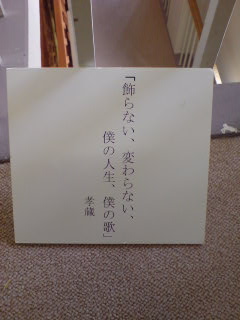 「飾らない、変わらない、
僕の人生、僕の歌」
孝蔵